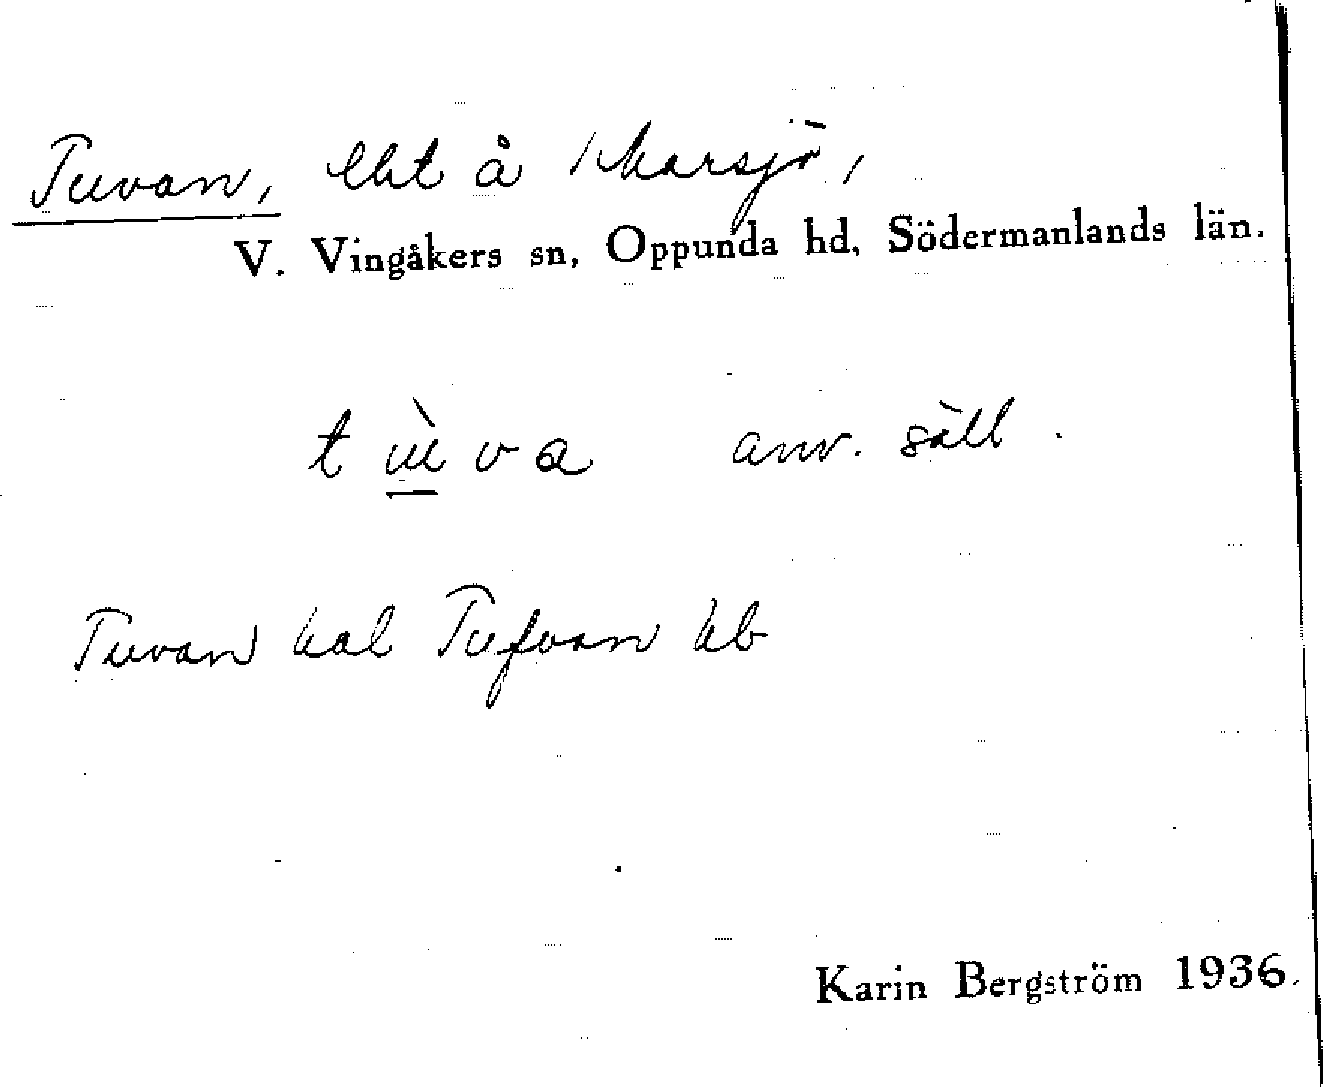 Tuvan, lht å Marsjö,
V. Vingåkers sn, Oppunda hd, Södermanlands län.
t ùva anv. säll.
Tuvan hal Tufvan kb
Karin Bergström 1936.